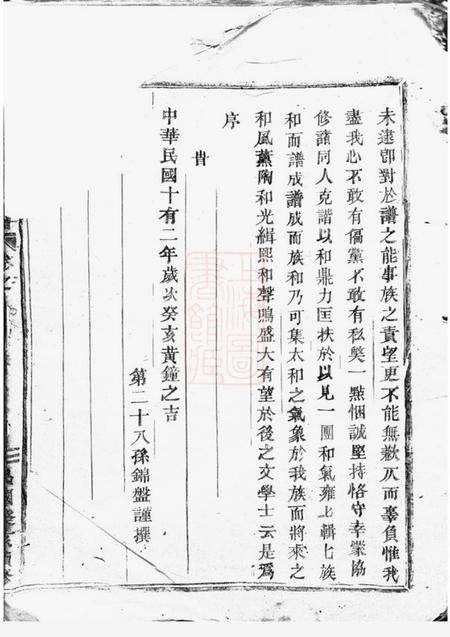 未逮卽對於譜之能事族之責望更不能無歉仄而辜負惟我
盡我心不敢有偏黨不敢有私獘一點悃誠堅持恪守幸蒙協
修諸同人克諧以和鼎力匡扶於以見一團和氣雍上輯七族
和而譜成譜成而族和乃可集太和之氣象於我族而將來之
和風薰陶和光緝熙和聲鳴盛大有望於後之文學士云是爲
序
旹
中華民國十有二年歲次癸亥黃鐘之吉
第二十八孫錦盤謹撰
上海圖書館藏